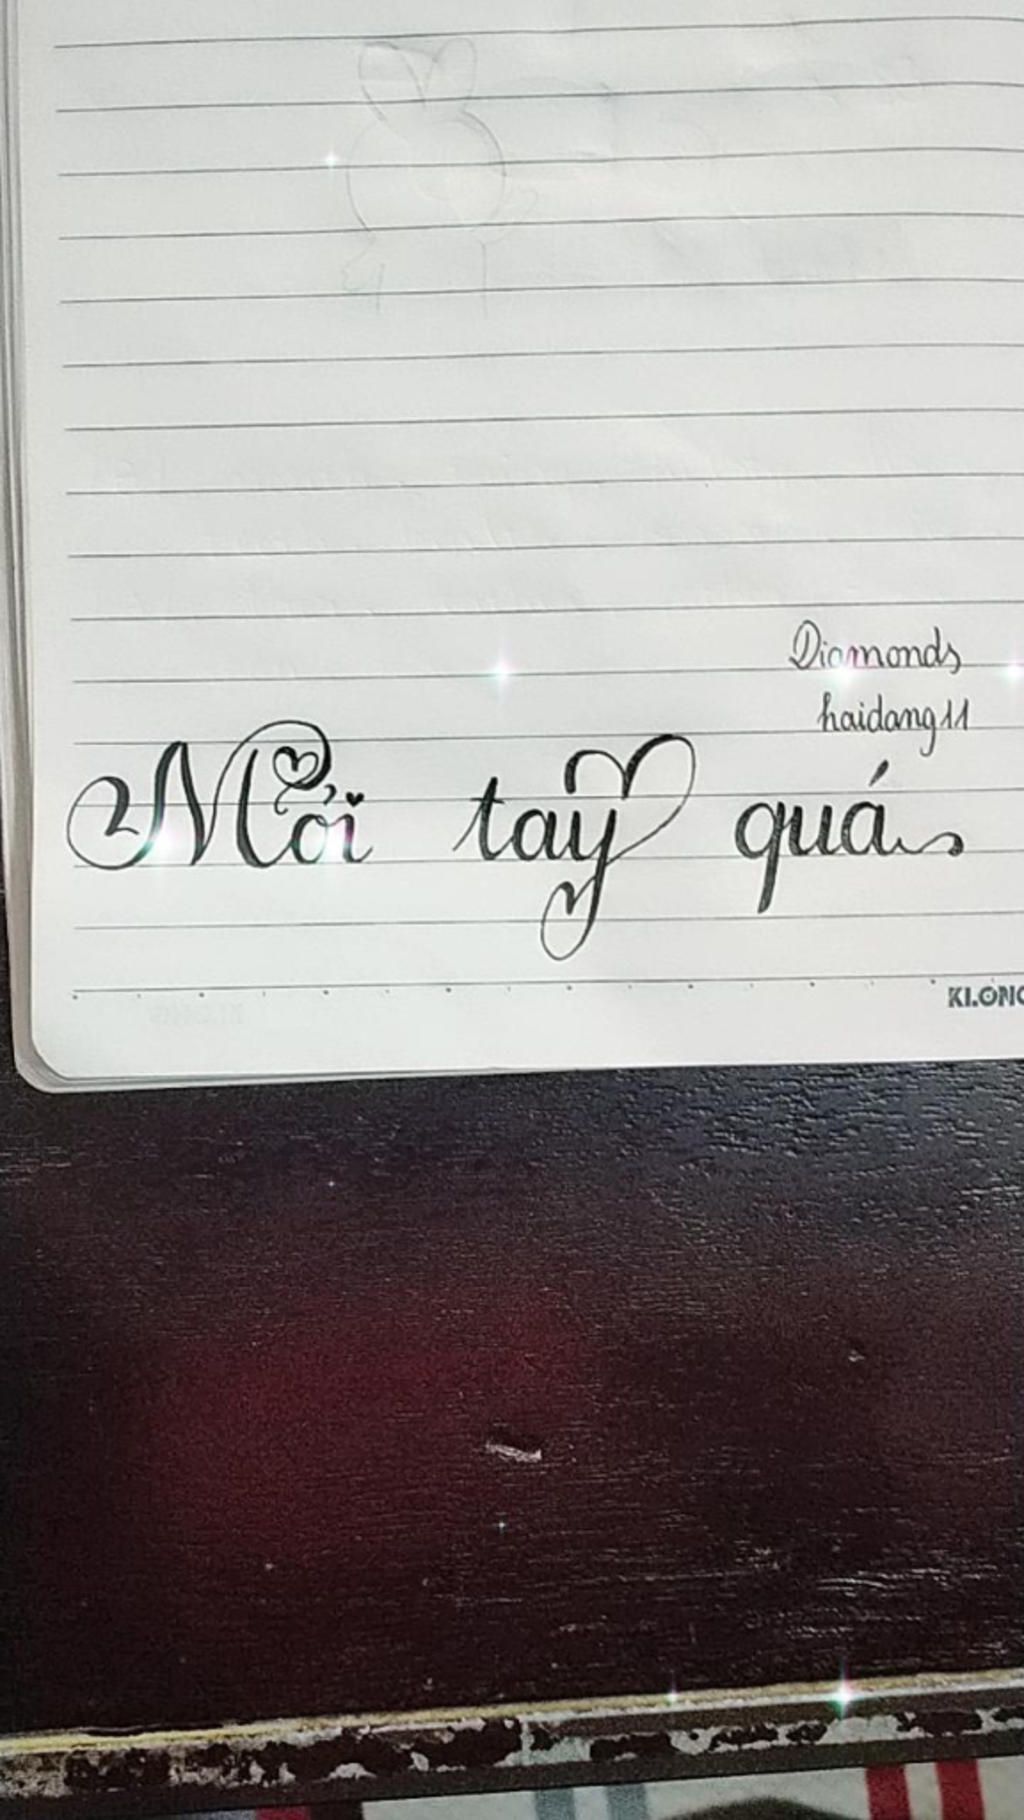 Diamonds
haidang11
Mỏi tay quá